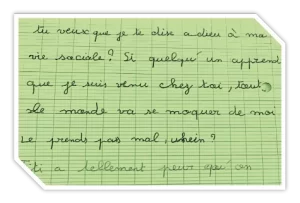 tu veux que je te dise adieu à ma
vie sociale? Si quelqu'un apprend
que je suis venu chez toi, tout
le monde va se moquer de moi
Le prends pas mal, hein?
Titi a tellement peur qu'on